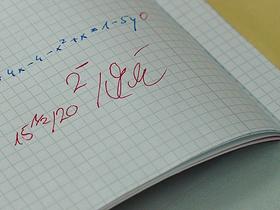 4x-4-x²+x=1-5y
2-
15 1/2/20